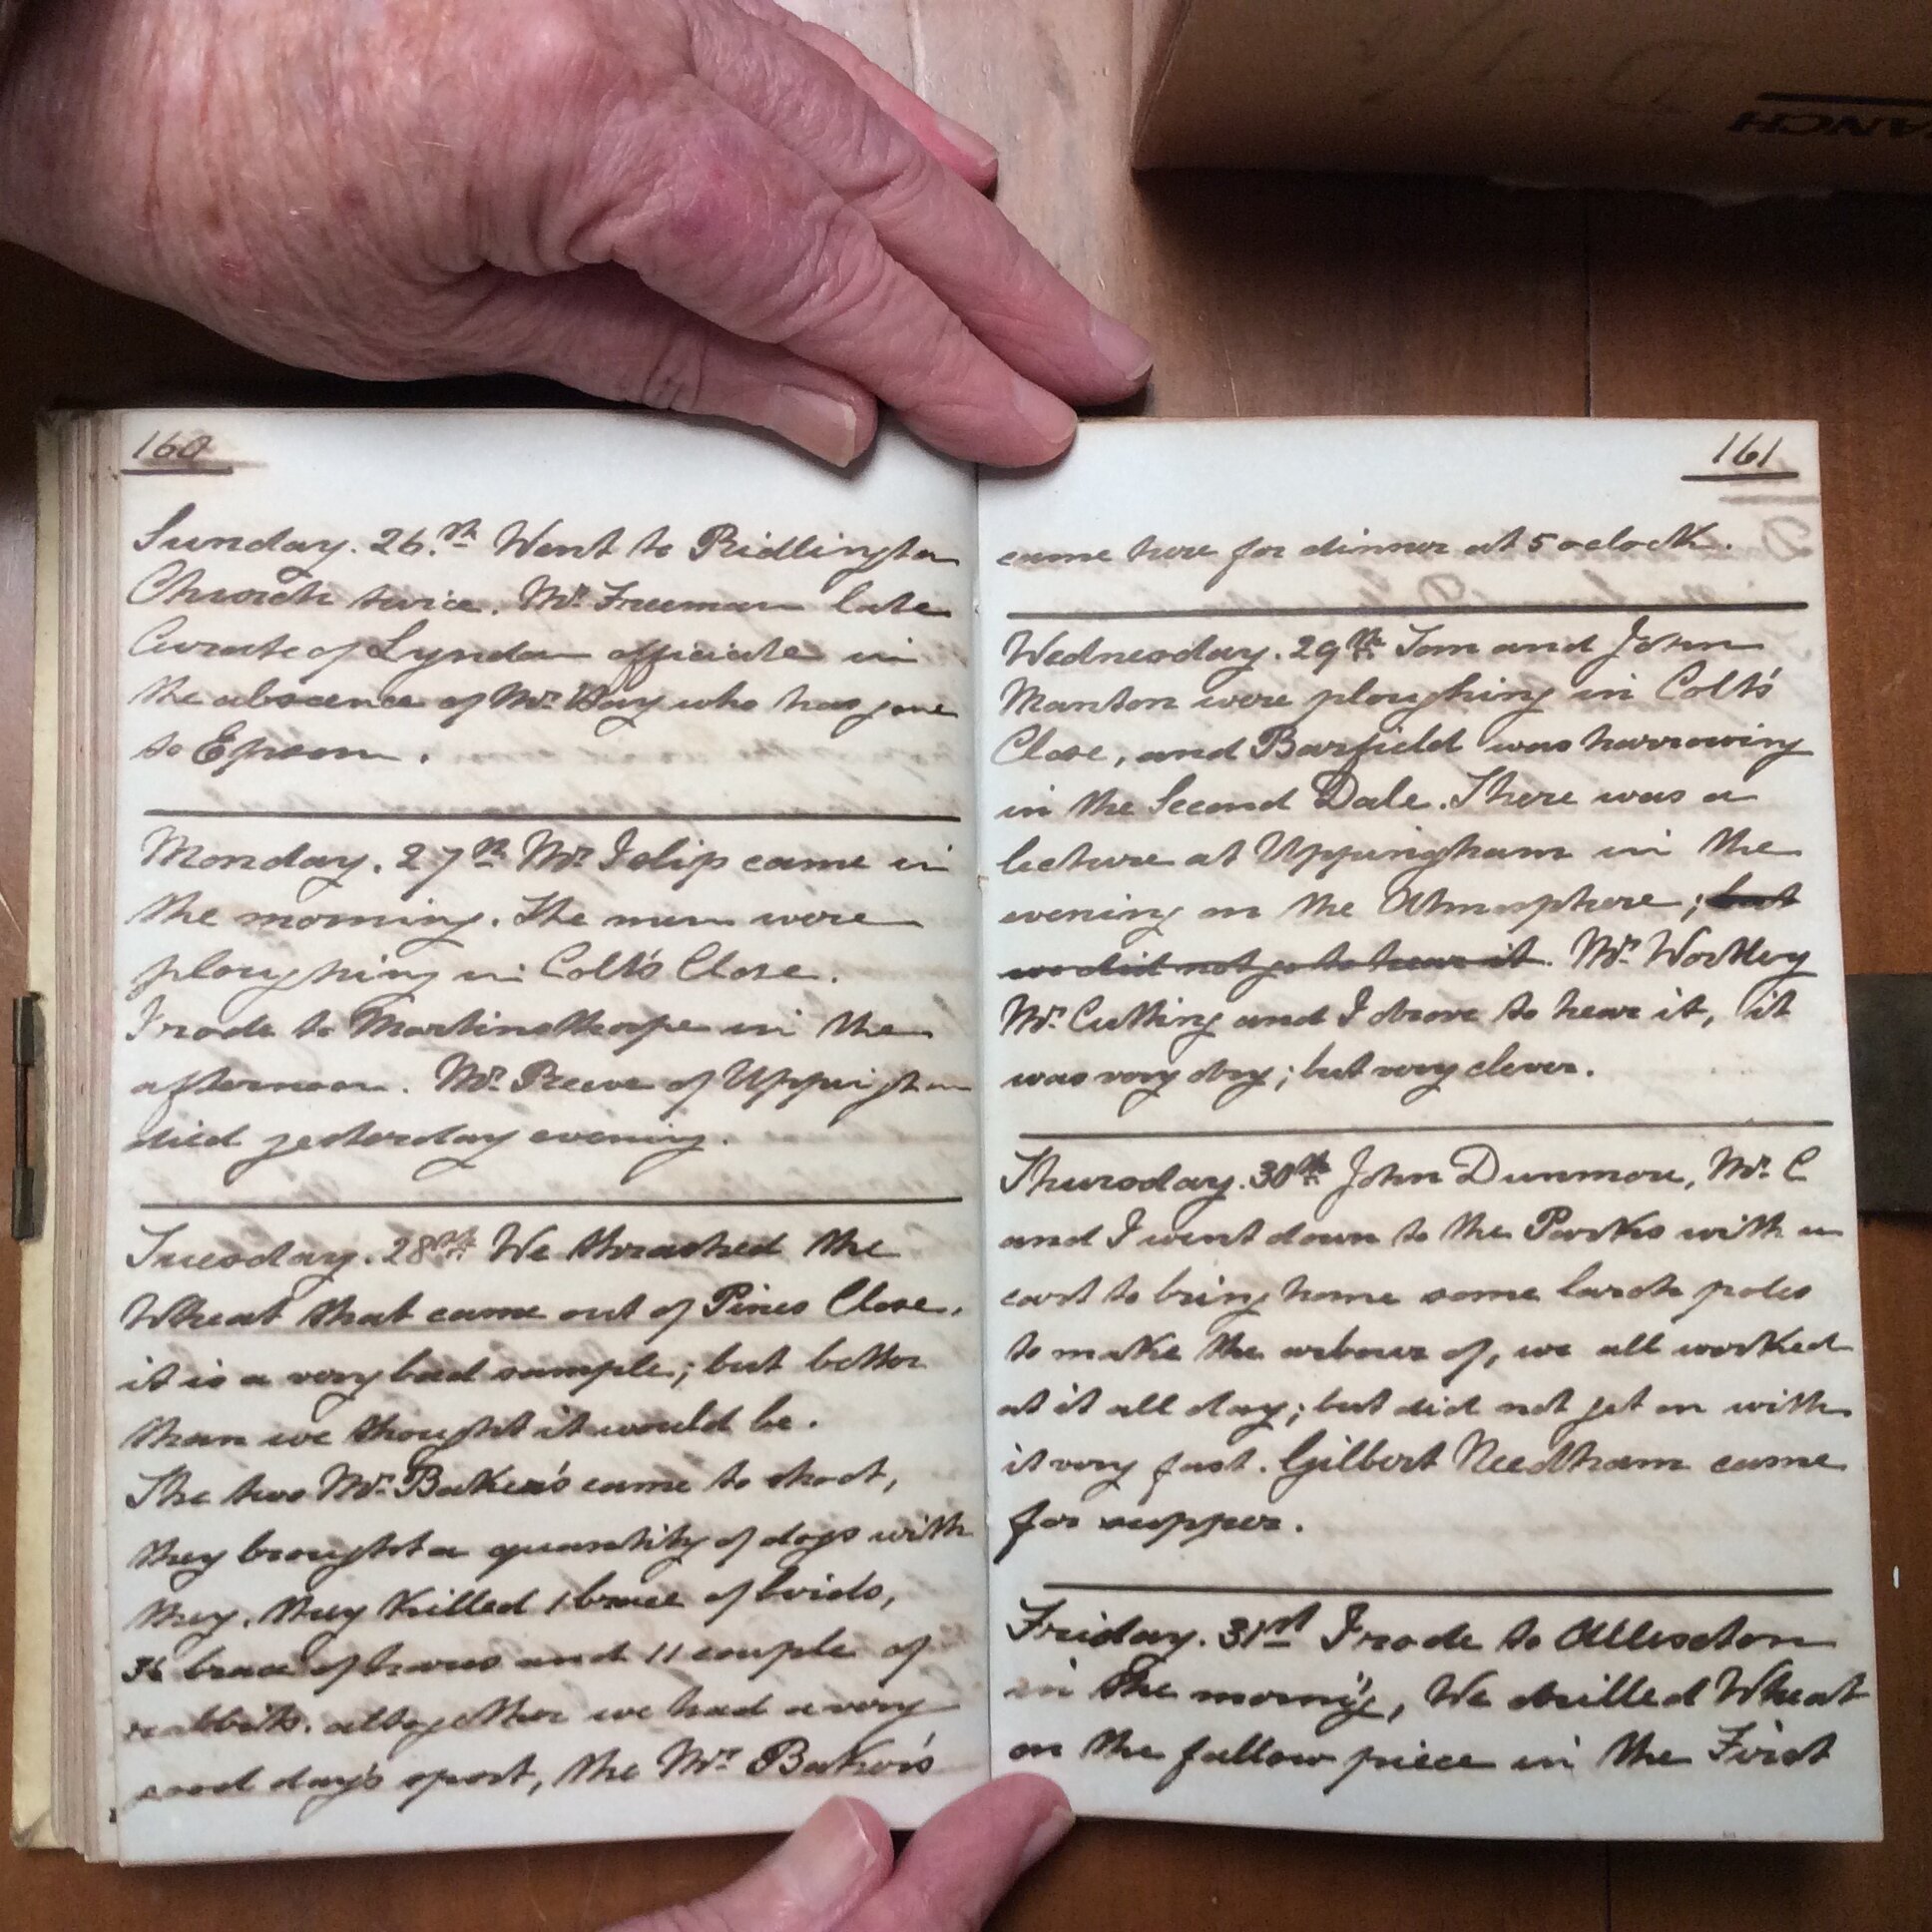 160
Sunday. 26th Went to Ridlington
Church twice. Mr Freeman late
Curate of Lyndon officiate in
the abscence of Mr Way who has gone
to Epsom.
Monday. 27th Mr Islip came in
the morning. The men were
ploughing in Colt's Close.
I rode to Martinsthorpe in the
afternoon. Mr Reeve of Uppingham
died yesterday evening.
Tuesday. 28th We thrashed the
Wheat that came out of Pines Close,
it is a very bad sample; but better
than we thought it would be.
The two Mr Baker's came to shoot,
they brought a quantity of dogs with
they. they killed 1 brace of birds,
36 brace of hares and 11 couple of
rabbits. altogether we had a very
good day's sport, the Mr Baker's
161
came here for dinner at 5 oclock.
Wednesday. 29th Tom and John
Manton were ploughing in Colt's
Close, and Barfield was harrowing
in the Second Dale. There was a
lecture at Uppingham in the
evening on the Atmosphere; but
we did not go to hear it. Mr Wortley
Mr Cutting and I drove to hear it, it
was very dry; but very clever.
Thursday. 30th John Dunmore, Mr C
and I went down to the Parks with a
cart to bring home some larch poles
to make the arbour of, we all worked
at it all day; but did not get on with
it very fast. Gilbert Needham came
for supper.
Friday. 31st I rode to Allexton
in the morn'g, We drilled Wheat
on the fallow piece in the First
ANCH